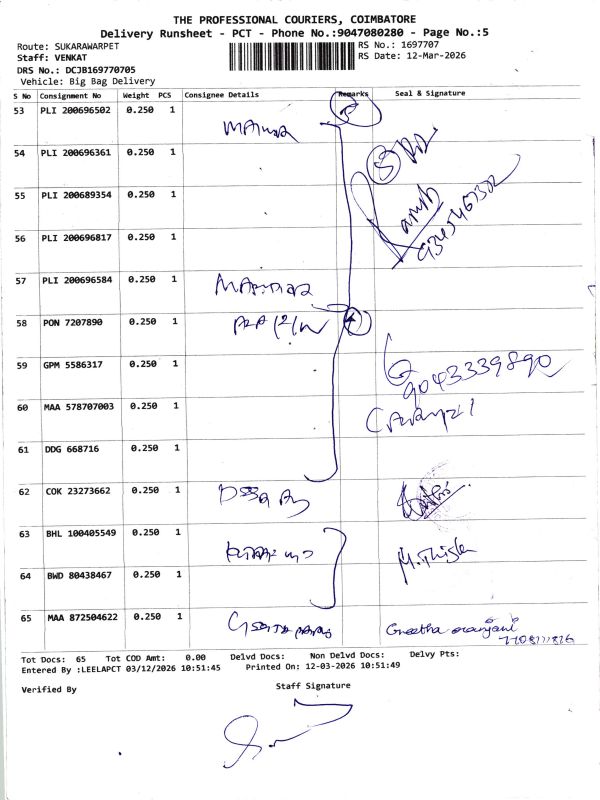 THE PROFESSIONAL COURIERS, COIMBATORE
Delivery Runsheet - PCT - Phone No.:9047080280 - Page No.:5
Route: SUKARAWARPET
Staff: VENKAT
DRS No.: DCJB169770705
Vehicle: Big Bag Delivery
RS No.: 1697707
RS Date: 12-Mar-2026
S No Consignment No Weight PCS Consignee Details Remarks Seal & Signature
53 PLI 200696502 0.250 1
54 PLI 200696361 0.250 1
55 PLI 200689354 0.250 1
56 PLI 200696817 0.250 1
57 PLI 200696584 0.250 1
58 PON 7207890 0.250 1
59 GPM 5586317 0.250 1
9043339890
60 MAA 578707003 0.250 1
61 DDG 668716 0.250 1
62 COK 23273662 0.250 1
63 BHL 100405549 0.250 1
64 BWD 80438467 0.250 1
65 MAA 872504622 0.250 1 Geetha
Tot Docs: 65 Tot COD Amt: 0.00 Delvd Docs: Non Delvd Docs: Delvy Pts:
Entered By :LEELAPCT 03/12/2026 10:51:45 Printed On: 12-03-2026 10:51:49
Verified By Staff Signature